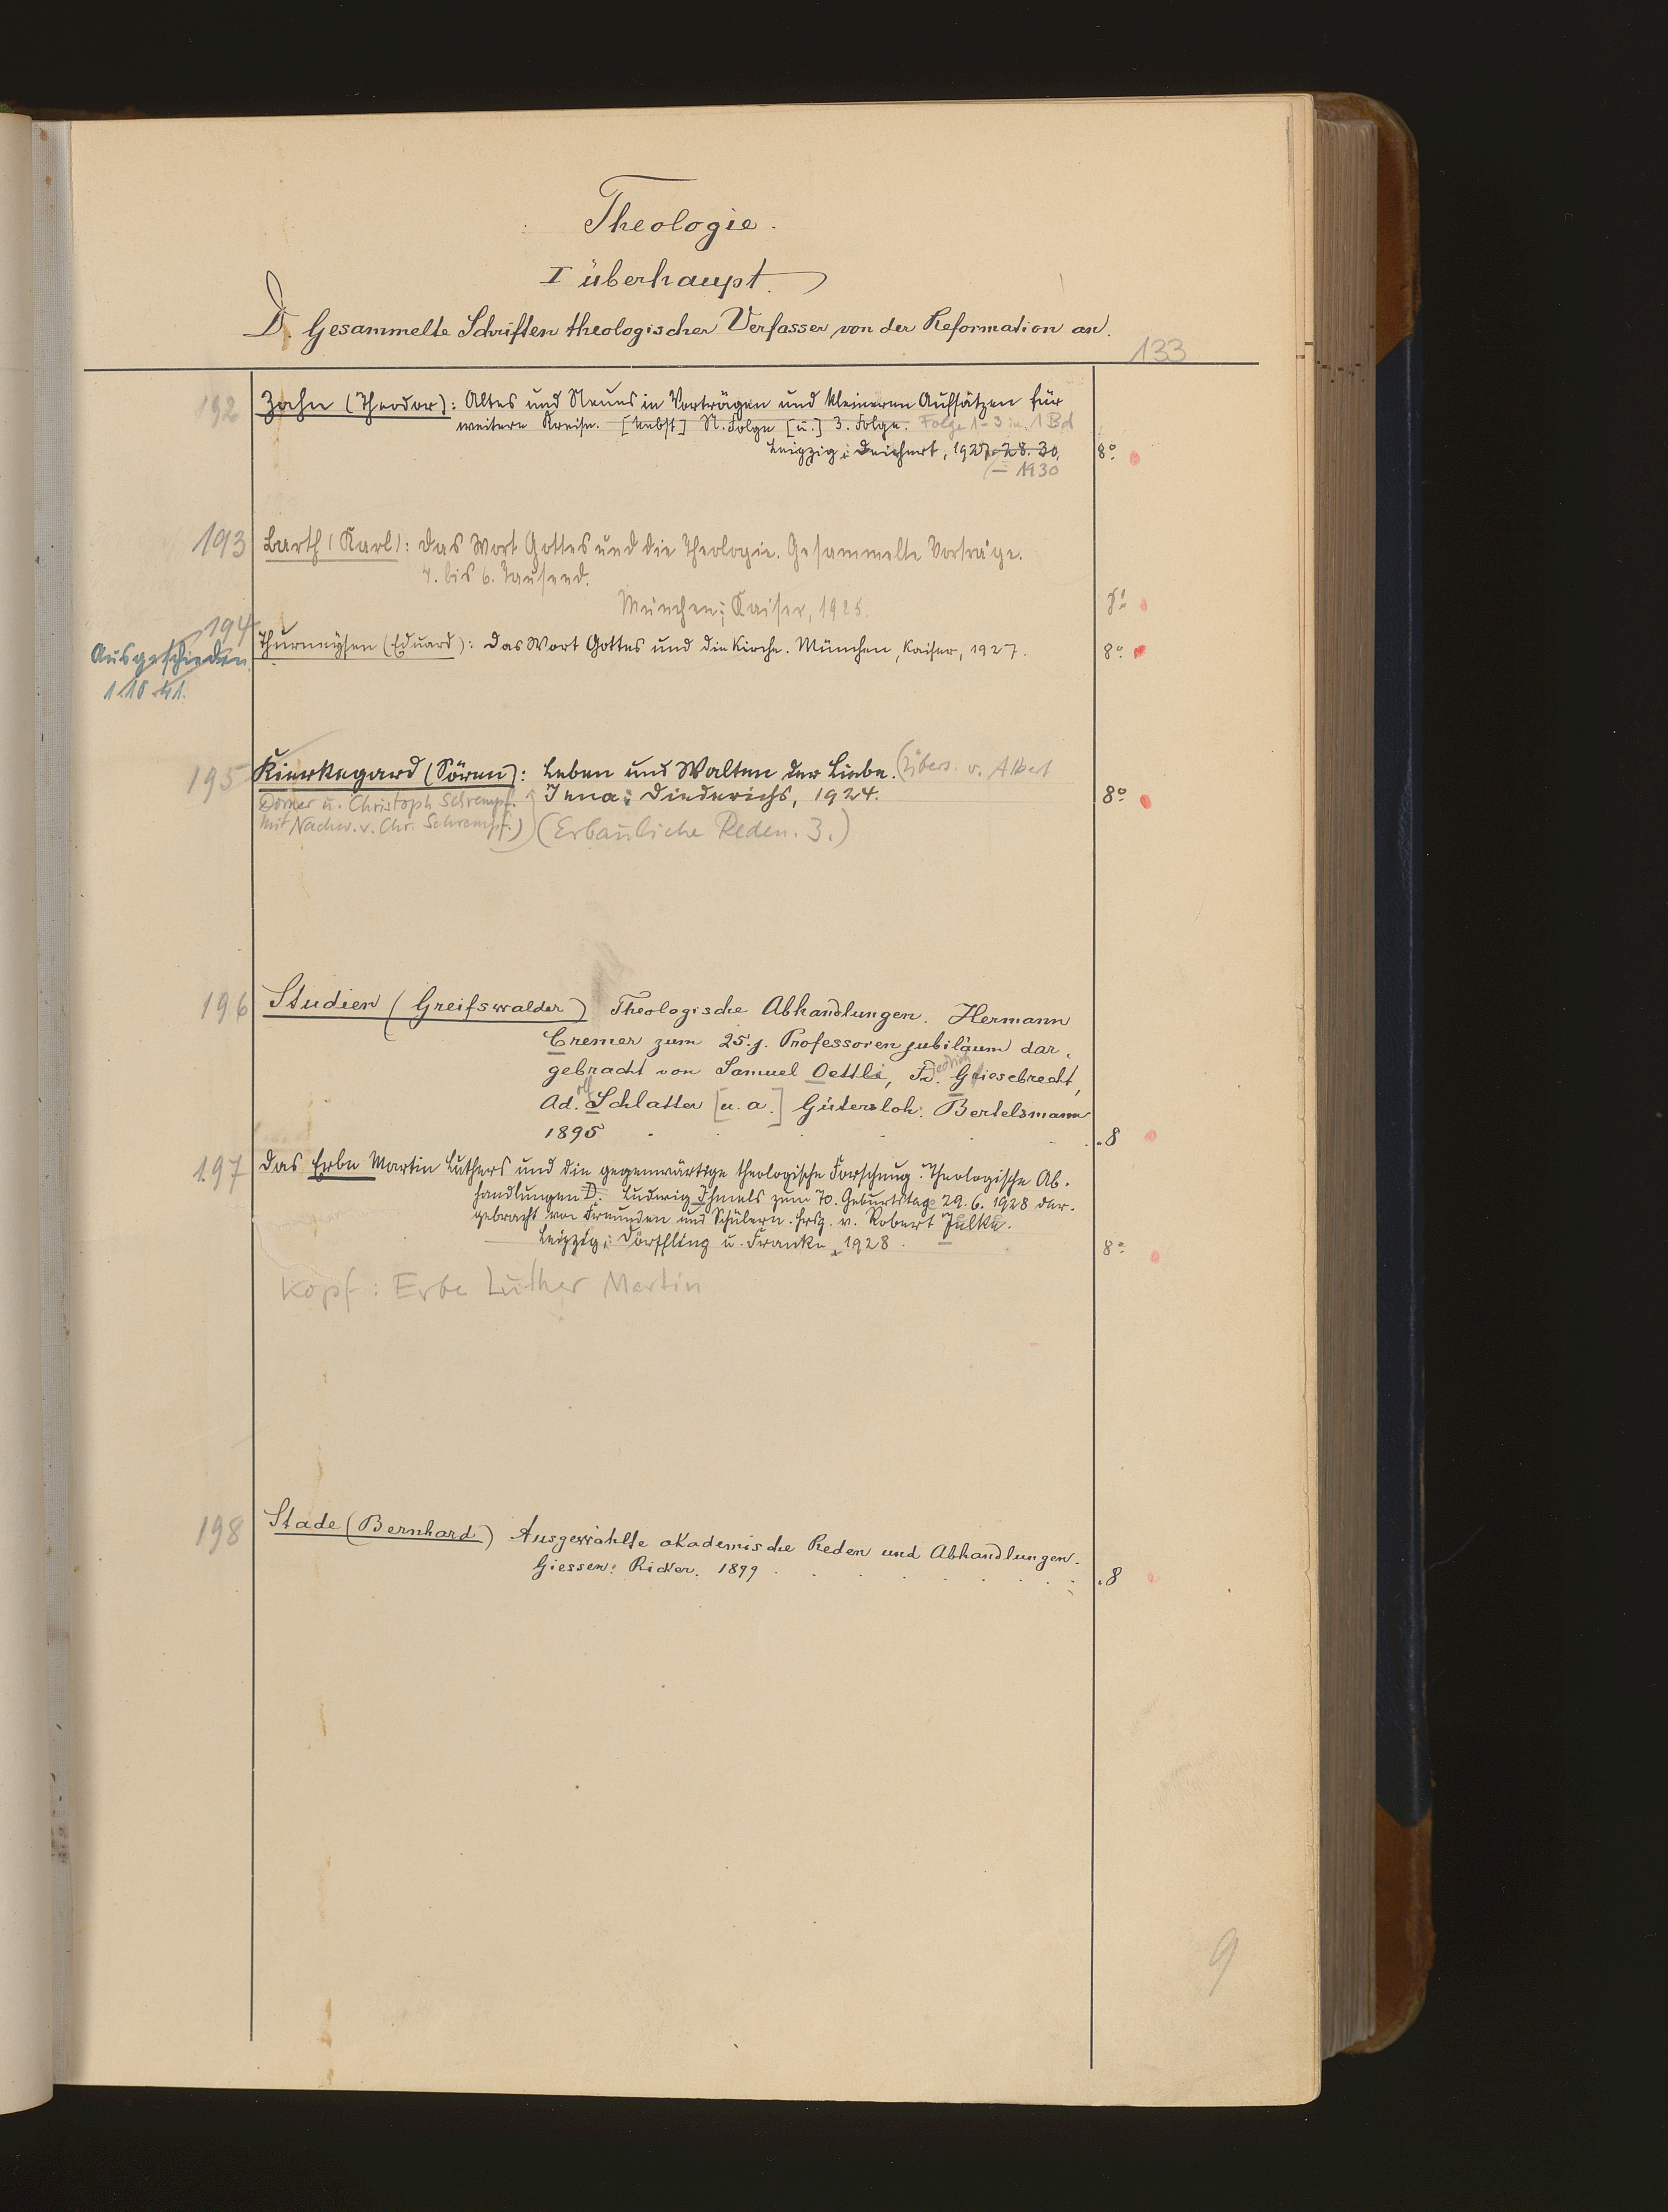 Theologie.
I überhaupt.
D. Gesammelte Schriften theologischer Verfasser von der Reformation an.
133
192 Zahn (Theodor): Altes und Neues in Vorträgen und kleineren Aufsätzen für
weitere Kreise. [Nebst] N. Folge [u.] 3. Folge. Folge 1-3 in 1 Bd
Leipzig: Deichert, 1927. 28. 30. 8°
- 1930
193 Barth (Karl): Das Wort Gottes und die Theologie. Gesammelte Vorträge.
4. bis 6. Tausend.
München: Kaiser, 1925. 8°
194 Thurneysen (Eduard): Das Wort Gottes und die Kirche. München, Kaiser, 1927. 8°
Ausgeschieden
1.10.41.
195 Kierkegaard (Sören): Leben und Walten der Liebe. (Übers. v. Albert
Dorner u. Christoph Schrempf. Jena: Diederichs, 1924. 8°
Mit Nachw. v. Chr. Schrempf.) (Erbauliche Reden. 3.)
196 Studien (Greifswalder) Theologische Abhandlungen. Hermann
Cremer zum 25.j. Professorenjubiläum dar-
gebracht von Samuel Oettli, Friedrich Giesebrecht,
Adolf Schlatter [u. a.] Gütersloh: Bertelsmann
1895 8
197 Das Erbe Martin Luthers und die gegenwärtige theologische Forschung. Theologische Ab-
handlungen D. Ludwig Ihmels zum 70. Geburtstage 29. 6. 1928 dar-
gebracht von Freunden und Schülern. Hrsg. v. Robert Jelke.
Leipzig: Dörffling u. Franke, 1928. 8°
Kopf: Erbe Luther Martin
198 Stade (Bernhard) Ausgewählte akademische Reden und Abhandlungen.
Giessen: Ricker. 1899 8
9